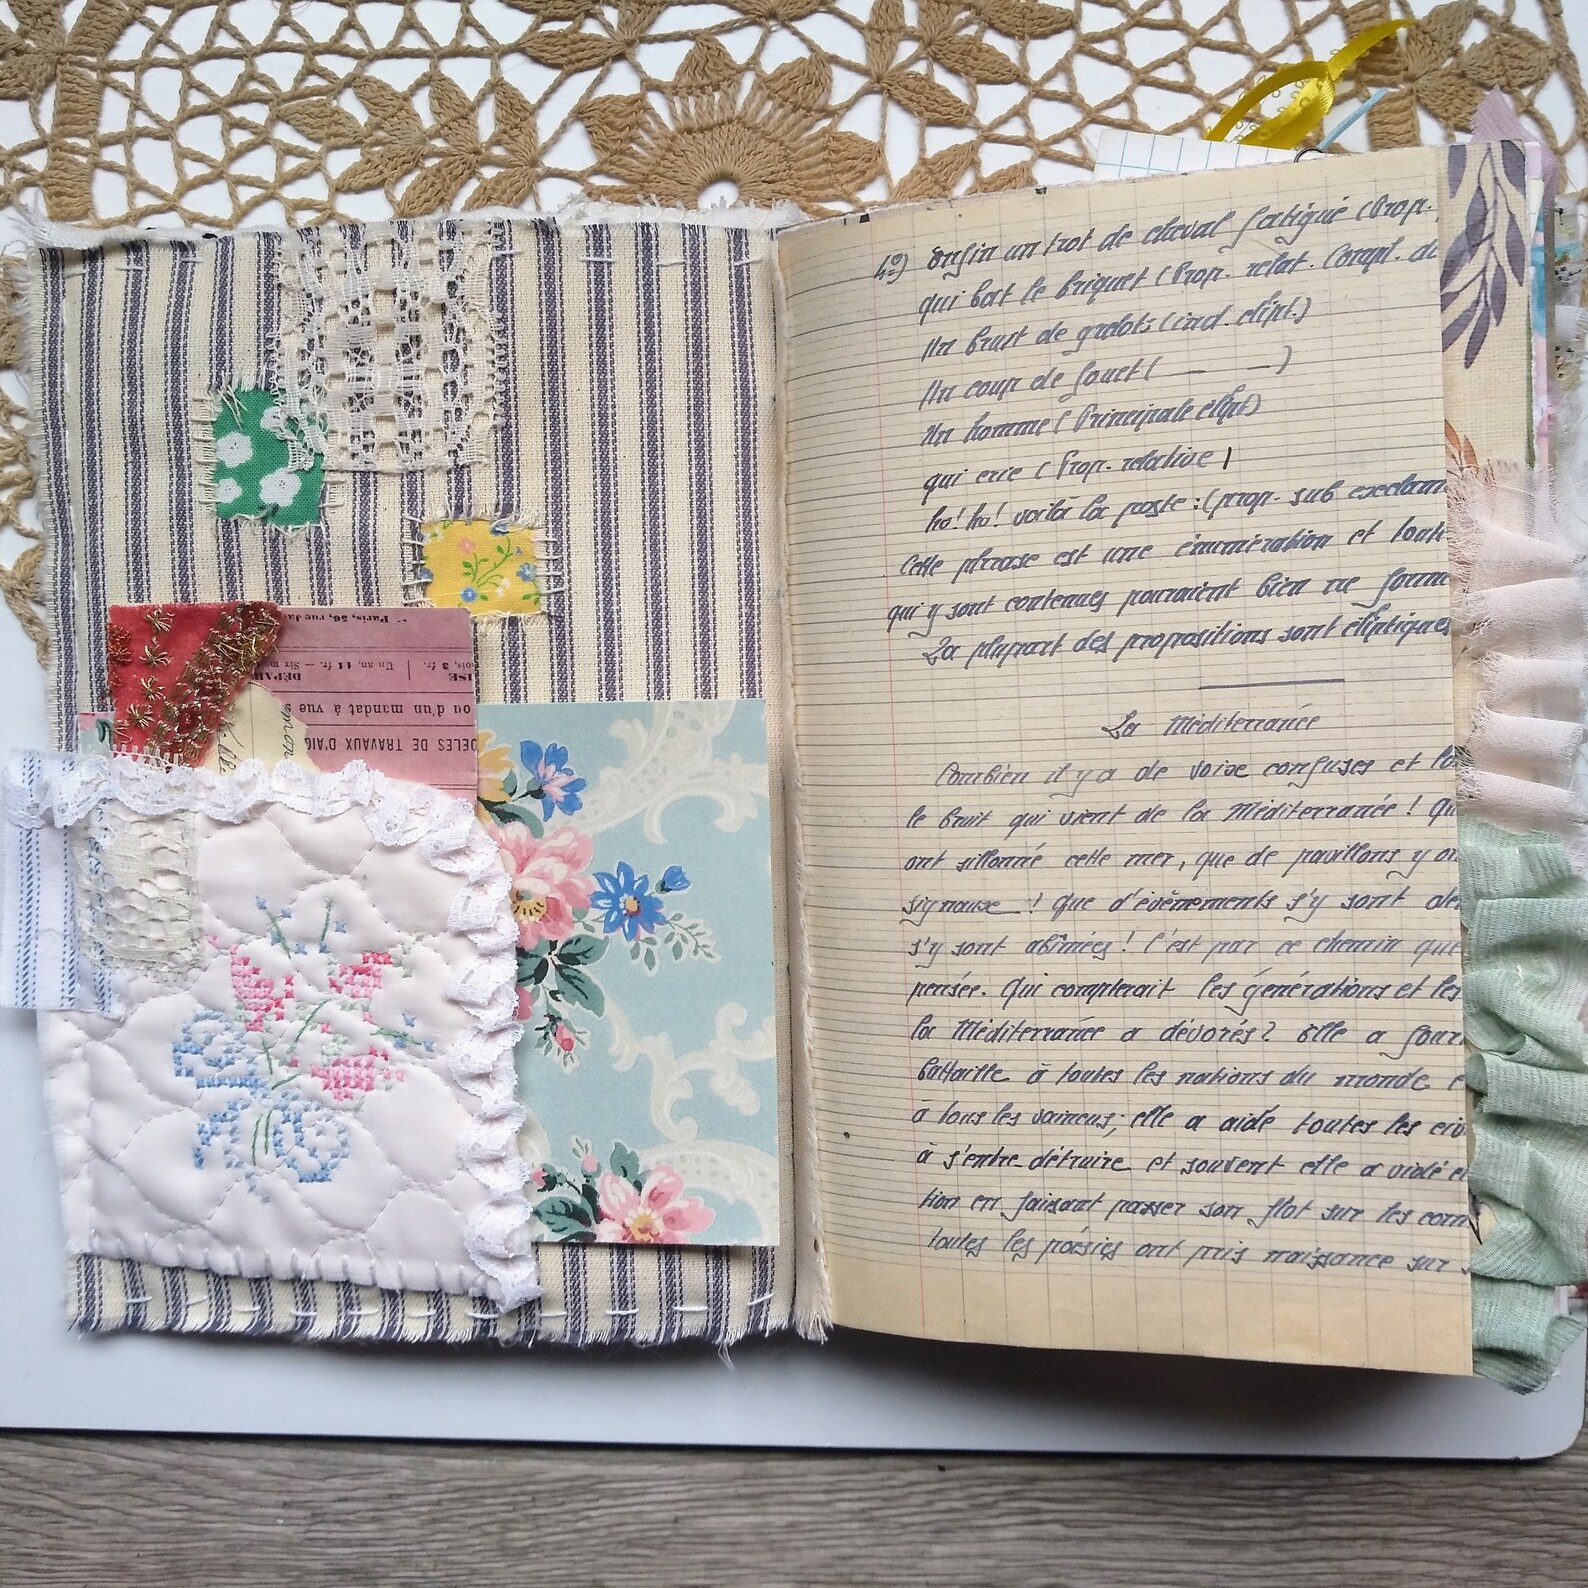 Paris, 56, rue Ja
Un an, 11 fr. — Six mo
ois, 3 fr.
DÉPAR
ISE
ou d'un mandat à vue s
DÈLES DE TRAVAUX D'AIG
4º) Enfin un trot de cheval fatigué (Prop.
qui bat le briquet (Prop. relat. Compl. de
Un bruit de grelots (ind. elipt.)
Un coup de fouet ( — — )
Un homme (Principale elipt)
qui erre (Prop. relative)
ho! ho! voilà la poste : (prop. sub exclam
Cette phrase est une énumération et tout
qui y sont contenues pourraient bien ne forme
La plupart des propositions sont éliptiques
La Méditerranée
Combien il y a de voix confuses et lo
le bruit qui vient de la Méditerranée ! Qu
ont sillonné cette mer, que de pavillons y on
signaux ! Que d'évènements s'y sont
s'y sont abîmées ! C'est par ce chemin que
pensée. Qui compterait les générations et les
la Méditerranée a dévorés ? Elle a four
bataille à toutes les nations du monde e
à tous les vaincus ; elle a aidé toutes les civ
à s'entre détruire et souvent elle a vidé
tion en faisant passer son flot sur les con
toutes les poésies ont pris naissance sur s